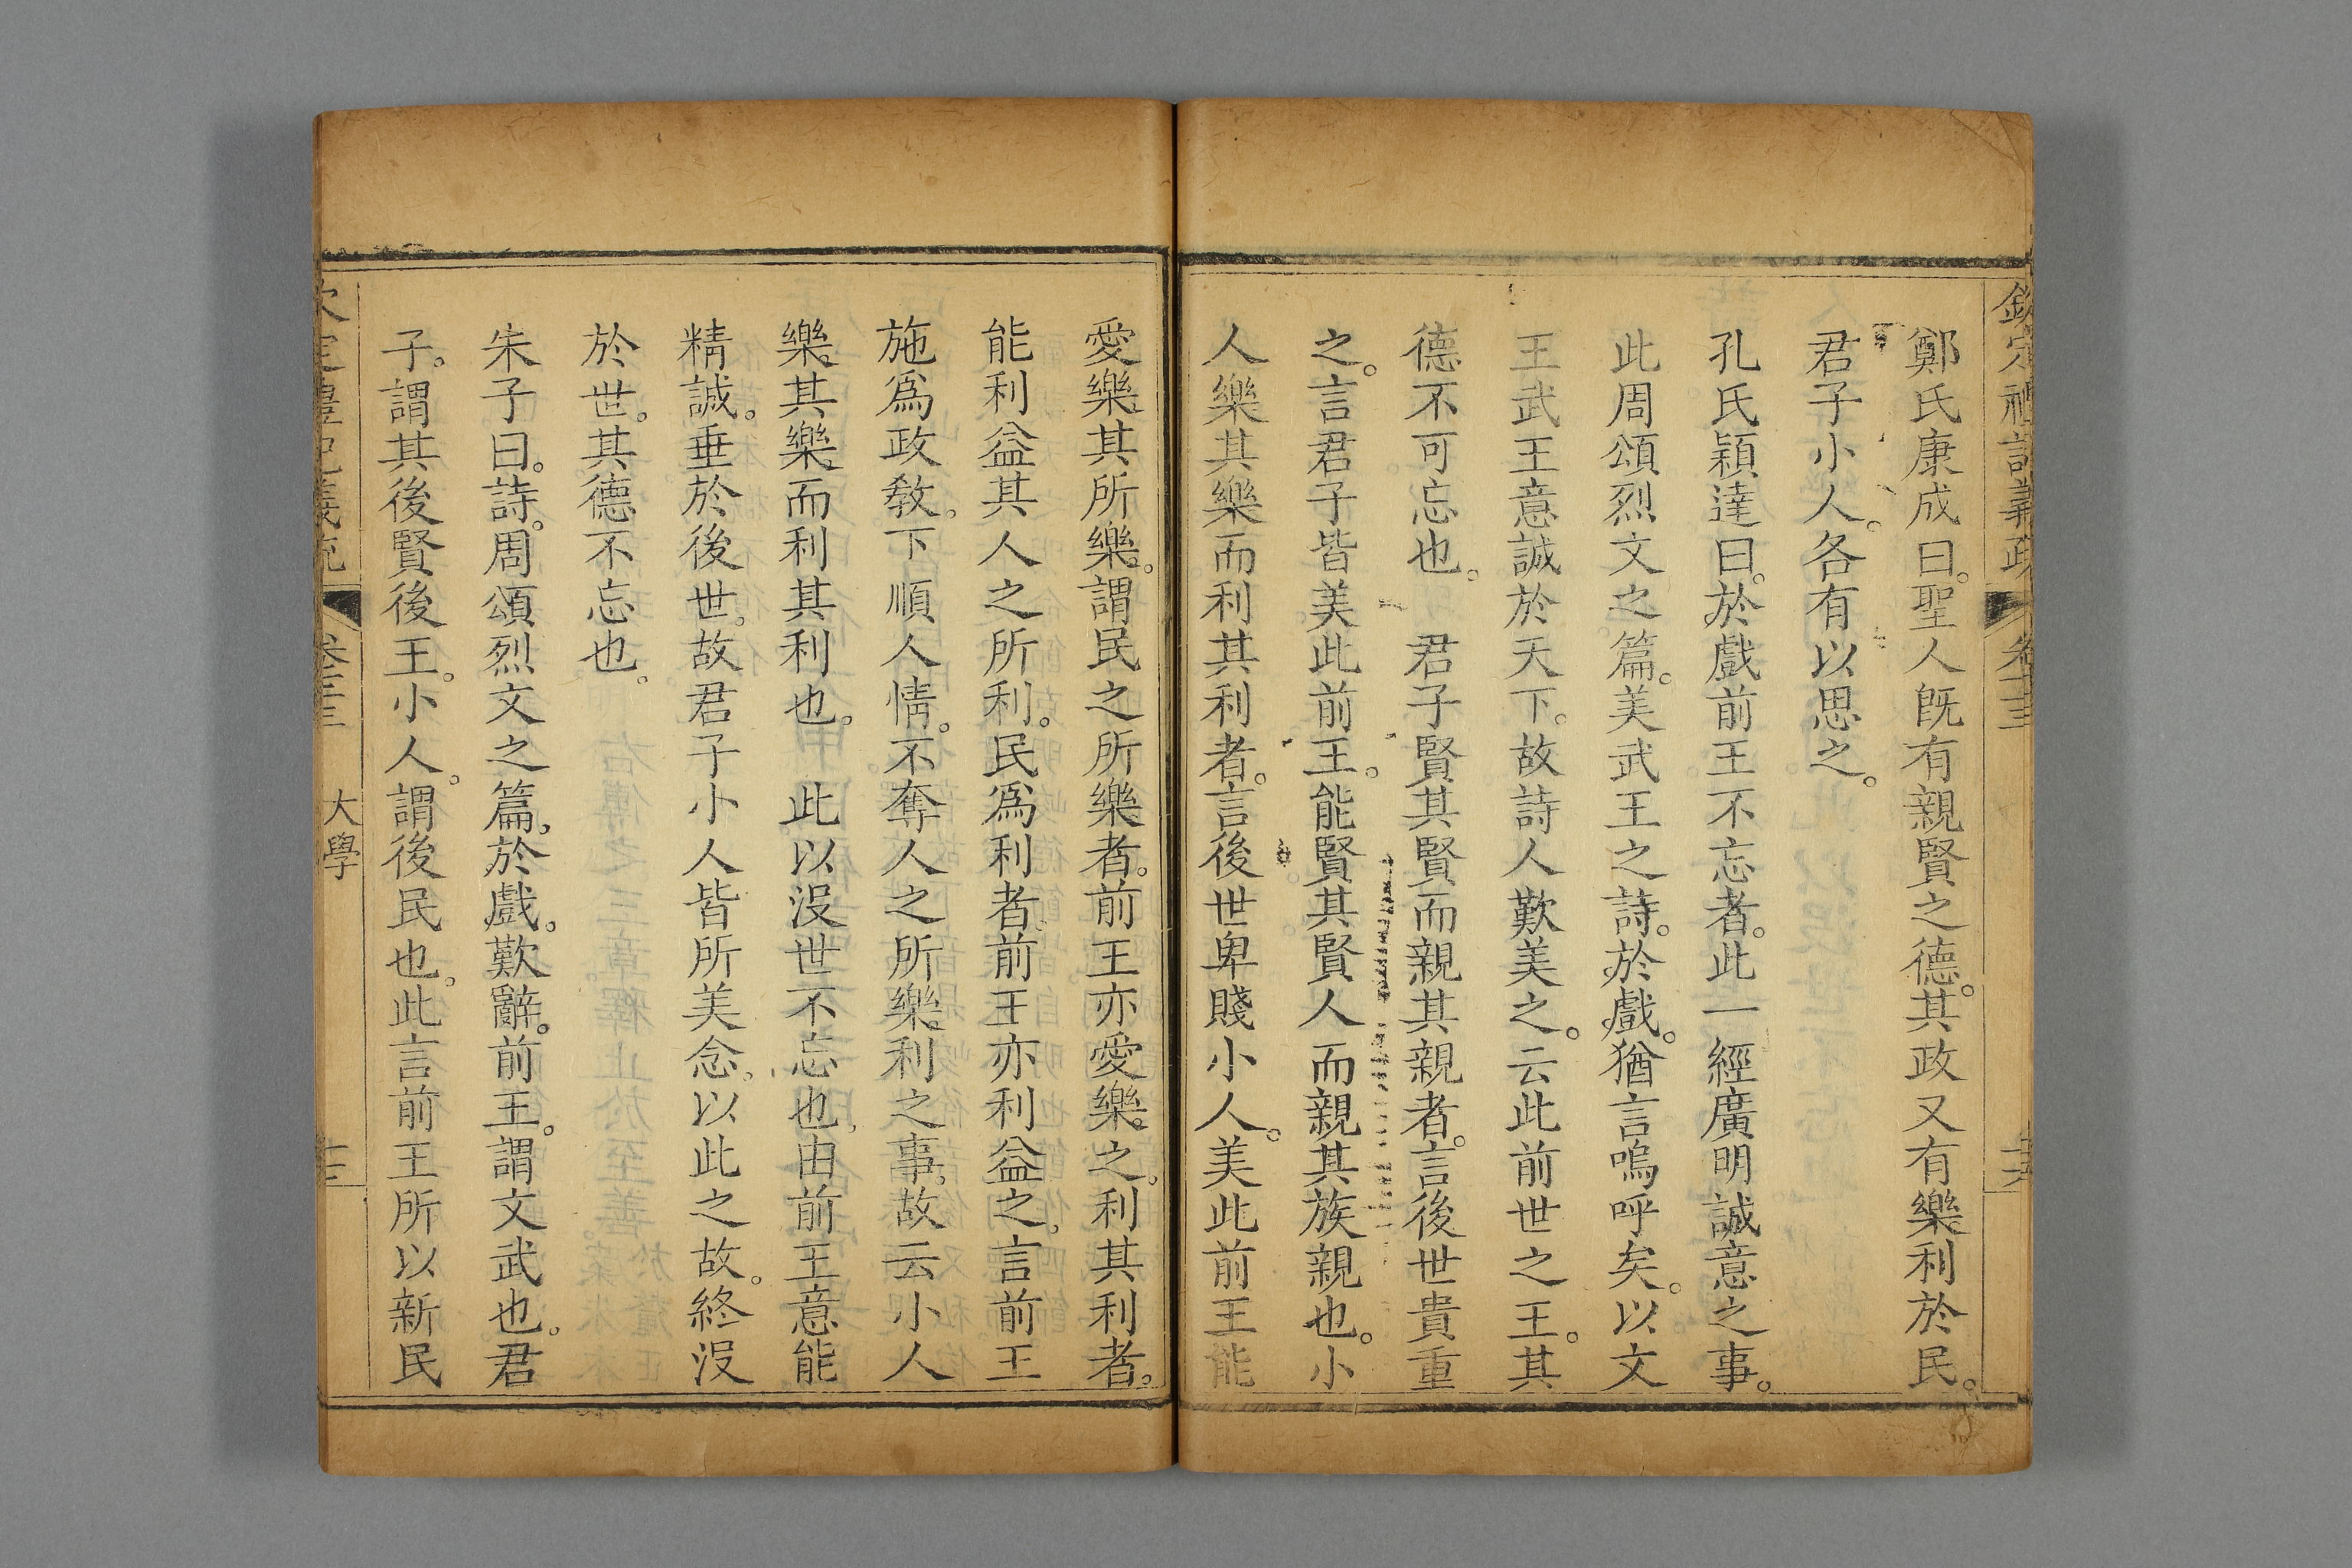 欽定禮記義疏 卷七十三
鄭氏康成曰。聖人旣有親賢之德。其政又有樂利於民。
君子小人。各有以思之。
孔氏穎達曰。於戲前王不忘者。此一經廣明誠意之事。
此周頌烈文之篇。美武王之詩。於戲。猶言嗚呼矣。以文
王武王意誠於天下。故詩人歎美之。云此前世之王。其
德不可忘也。 君子賢其賢而親其親者。言後世貴重
之。言君子皆美此前王。能賢其賢人而親其族親也。小
人樂其樂而利其利者。言後世卑賤小人。美此前王能
愛樂其所樂。謂民之所樂者。前王亦愛樂之。利其利者。
能利益其人之所利。民爲利者。前王亦利益之。言前王
施爲政敎。下順人情。不奪人之所樂。利之事。故云小人
樂其樂而利其利也。 此以沒世不忘也。由前王意能
精誠。垂於後世。故君子小人皆所美念。以此之故。終沒
於世。其德不忘也。
朱子曰。詩。周頌烈文之篇。於戲。歎辭。前王。謂文武也。君
子。謂其後賢後王。小人。謂後民也。此言前王所以新民
欽定禮記義疏 卷七十三 大學